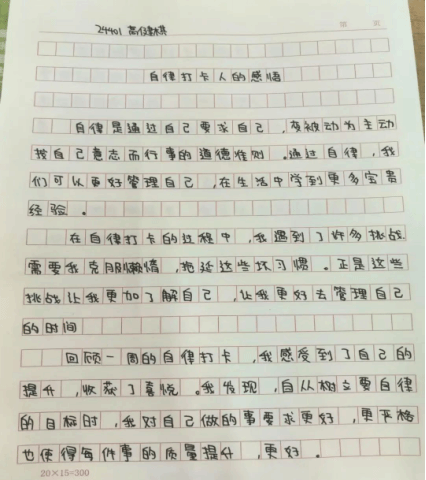 24401 高健棋
第 页
自律打卡人的感悟
自律是通过自己要求自己,变被动为主动
按自己意志而行事的道德准则。通过自律,我
们可以更好管理自己,在生活中学到更多宝贵
经验。
在自律打卡的过程中,我遇到了许多挑战
需要我克服懒惰,拖延这些坏习惯。正是这些
挑战让我更加了解自己,让我更好去管理自己
的时间
回顾一周的自律打卡,我感受到了自己的
提升,收获了喜悦。我发现,自从树立要自律
的目标时,我对自己做的事要求更好,更严格
也使得每件事的质量提升,更好.
20×15=300